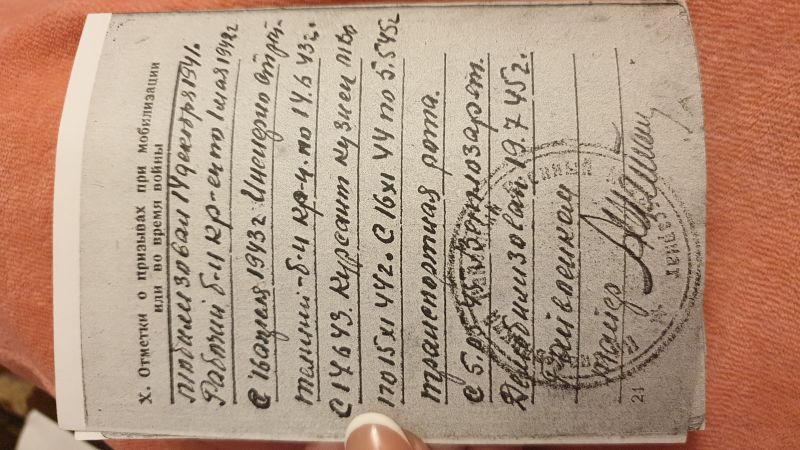 X. Отметки о призывах при мобилизации
или во время войны
мобилизован 14 декабря 1941г.
Рабочий б-н кр-ец по 1 мая 1942г
С 16 апреля 1943г Инженерно строи-
тельный б-н кр-ц. по 14.6 43г.
С 14.6 43. Курсант кузнец
по 15 XI 44г. С 16 XI 44 по 5.5 45г
транспортная рота.
С 5.
Демобилизован 19.7 45г.
Райвоенком
майор
21